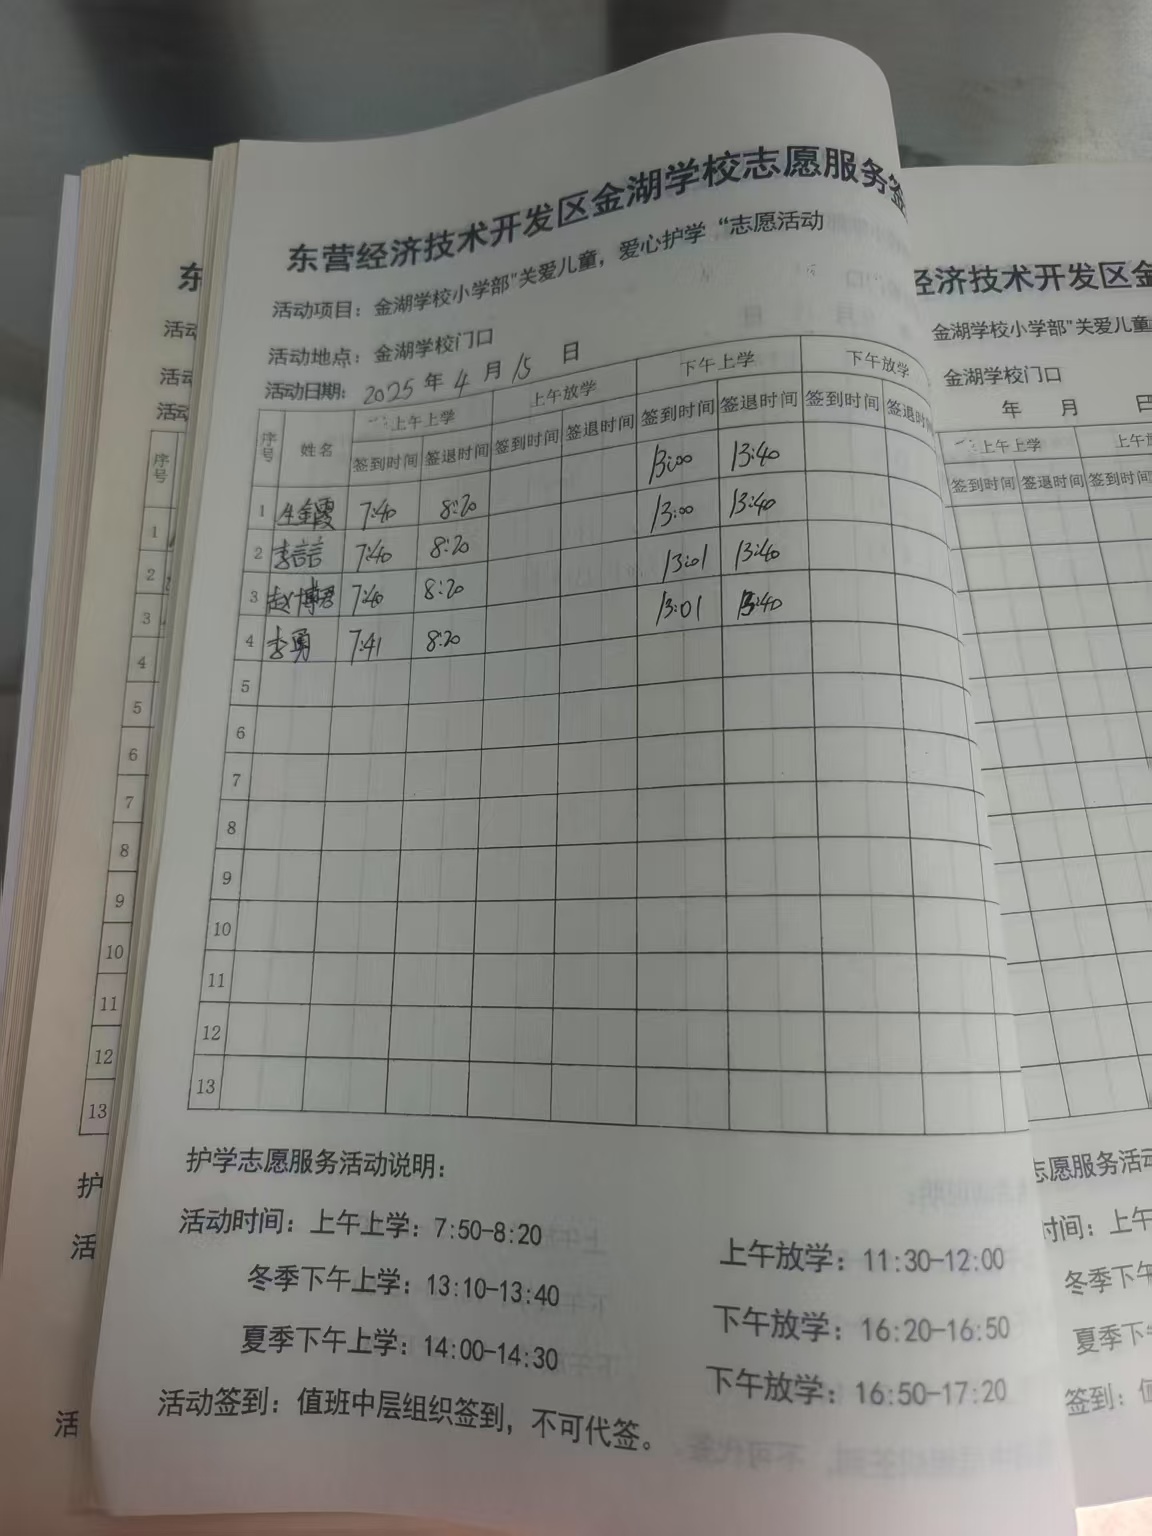 东营经济技术开发区金湖学校志愿服务签
活动项目：金湖学校小学部"关爱儿童，爱心护学"志愿活动
活动地点：金湖学校门口
活动日期：2025年4月15日
序号 姓名 上午上学 上午放学 下午上学 下午放学
签到时间 签退时间 签到时间 签退时间 签到时间 签退时间 签到时间 签退时间
1 7:40 8:20 13:00 13:40
2 李言言 7:40 8:20 13:00 13:40
3 赵博君 7:40 8:20 13:01 13:40
4 李勇 7:41 8:20 13:01 13:40
5
6
7
8
9
10
11
12
13
护学志愿服务活动说明：
活动时间：上午上学：7:50-8:20 上午放学：11:30-12:00
冬季下午上学：13:10-13:40 下午放学：16:20-16:50
夏季下午上学：14:00-14:30 下午放学：16:50-17:20
活动签到：值班中层组织签到，不可代签。
东
活动
活动
活动
序号
1
2
3
4
5
6
7
8
9
10
11
12
13
护
活
活
经济技术开发区金
金湖学校小学部"关爱儿童
金湖学校门口
年 月 日
上午上学 上午放
签到时间 签退时间 签到时间
志愿服务活动
时间：上午
冬季下午
夏季下午
签到：值